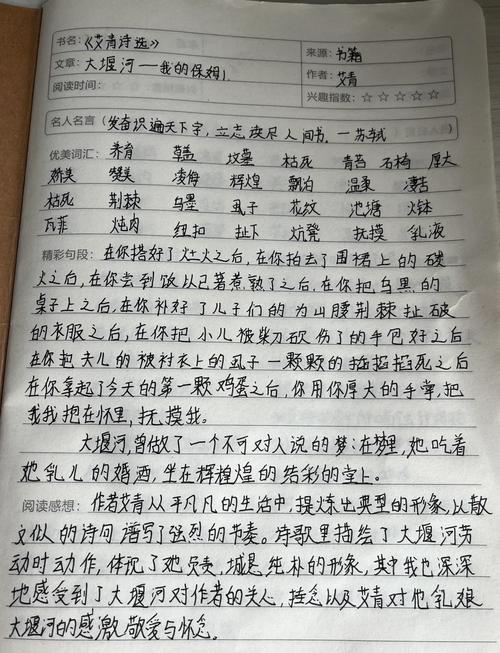 书名：《艾青诗选》
来源：书籍
文章：大堰河一我的保姆）
作者：艾青
阅读时间：
兴趣指数：☆ ☆ ☆ ☆ ☆
名人名言（发奋识遍天下字，立志读尽人间书。一苏轼）
优美词汇：养育 草盖 坟墓 枯死 青苔 石椅 厚大
娇美 赞美 凌侮 辉煌 飘泊 温柔 凄苦
枯死 荆棘 乌黑 虱子 花纹 池塘 火钵
瓦菲 炖肉 纽扣 扯下 炕凳 抚摸 乳液
精彩句段：在你搭好了灶火之后，在你拍去了围裙上的碳
火之后，在你尝到饭以已著煮熟了之后，在你把乌黑的
桌子上之后，在你补好了儿子们的为山腰荆棘扯破
的衣服之后，在你把小儿被柴刀砍伤了的手包好之后
在你把夫儿的被衬衣上的虱子一颗颗的掐死之后
在你拿起了今天的第一颗鸡蛋之后，你用你厚大的手掌，把
我抱在怀里，抚摸我。
大堰河，曾做了一个不可对人说的梦：在梦里，她吃着
她乳儿的婚酒，坐在辉煌的结彩的堂上。
阅读感想：作者艾青从平凡的生活中，提炼出典型的形象，以散
文似的诗句谱写了强烈的节奏。诗歌里描绘了大堰河劳
动时动作，体现了她负责，城恳纯朴的形象，其中我也深深
地感受到了大堰河对作者的关心，挂念以及艾青对他乳娘
大堰河的感激敬爱与怀念。